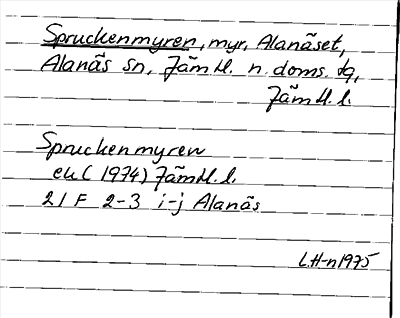 Spruckenmyren, myr, Alanäset,
Alanäs sn, Jämtl. n. doms. tg,
Jämtl. l.
Spruckenmyren
ek (1974) Jämtl. l.
21 F 2-3 i-j Alanäs
L.H-n 1975